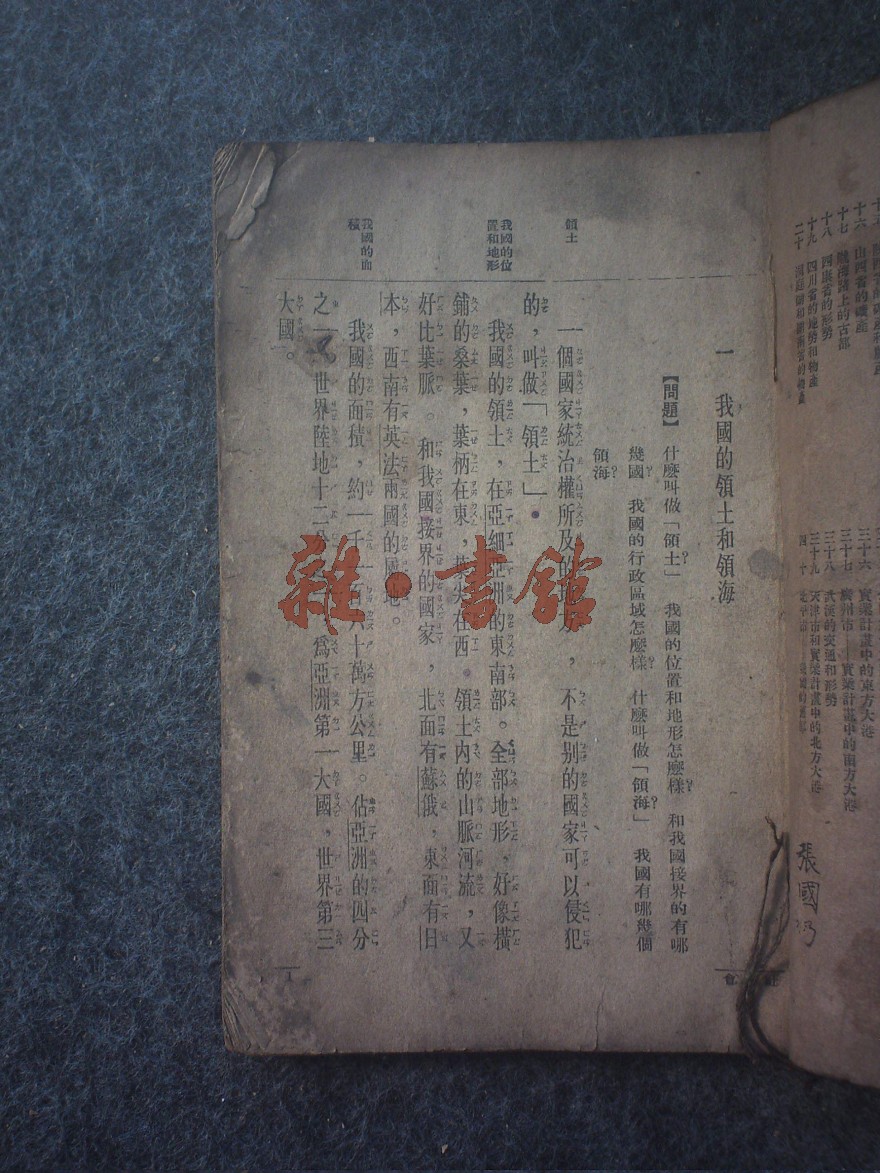 一 我國的領土和領海
【問題】 什麼叫做「領土」？ 我國的位置和地形怎麼樣？ 和我國接界的有哪
幾國？ 我國的行政區域怎麼樣？ 什麼叫做「領海」？ 我國有哪幾個
領海？
領土
一個國家統治權所及的地方，不是別的國家可以侵犯
的，叫做「領土」。
我國的位
置和地形
我國的領土，在亞細亞洲的東南部。全部地形，好像橫
鋪的桑葉，葉柄在東，葉尖在西。領土內的山脈河流，又
好比葉脈。和我國接界的國家，北面有蘇俄，東面有日
本，西南有英法兩國的屬地。
我國的面
積
我國的面積，約一千一百 十萬方公里。佔亞洲的四分
之一，世界陸地十二分 爲亞洲第一大國，世界第三
大國。
一
十六 山西省的礦產
十七 隴海路上的古都
十八 四康省的形勢
十九 四川省的地勢和物產
二十
三十六 實業計畫中的東方大港
三十七 廣州市——實業計畫中的南方大港
三十八 武漢的交通和形勢
三十九 天津市和實業計畫中的北方大港
四十
張國
雜·書館